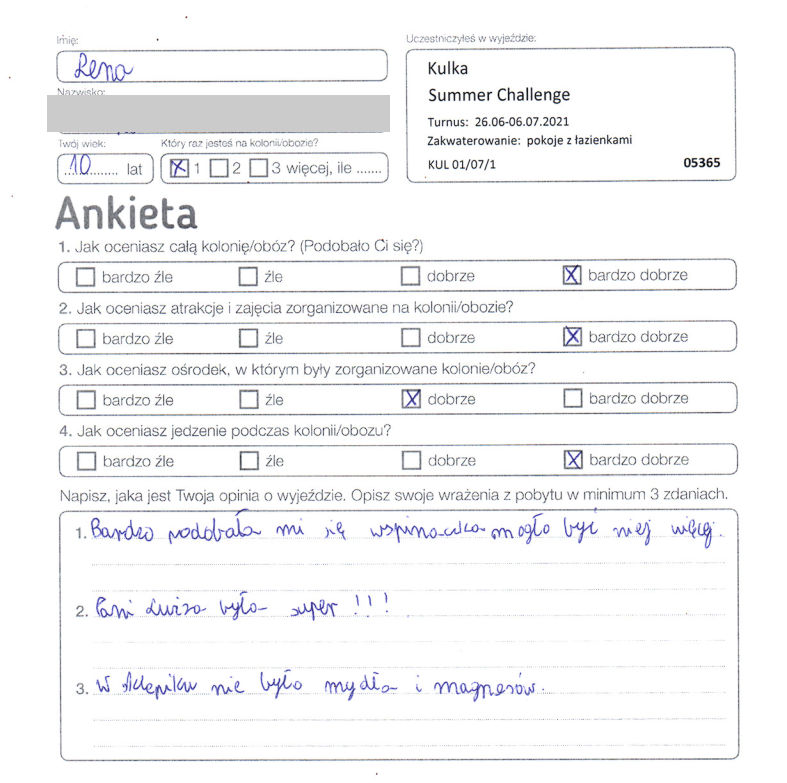 Imię:
Lena
Nazwisko:
Twój wiek:
10 lat
Który raz jesteś na kolonii/obozie?
1 2 3 więcej, ile .......
Uczestniczyłeś w wyjeździe:
Kulka
Summer Challenge
Turnus: 26.06-06.07.2021
Zakwaterowanie: pokoje z łazienkami
KUL 01/07/1 05365
Ankieta
1. Jak oceniasz całą kolonię/obóz? (Podobało Ci się?)
bardzo źle źle dobrze bardzo dobrze
2. Jak oceniasz atrakcje i zajęcia zorganizowane na kolonii/obozie?
bardzo źle źle dobrze bardzo dobrze
3. Jak oceniasz ośrodek, w którym były zorganizowane kolonie/obóz?
bardzo źle źle dobrze bardzo dobrze
4. Jak oceniasz jedzenie podczas kolonii/obozu?
bardzo źle źle dobrze bardzo dobrze
Napisz, jaka jest Twoja opinia o wyjeździe. Opisz swoje wrażenia z pobytu w minimum 3 zdaniach.
1. Bardzo podobała mi się wspinaczka mogło być niej więcej.
2. Pani Luiza była super !!!
3. W sklepiku nie było mydła i magnesów.